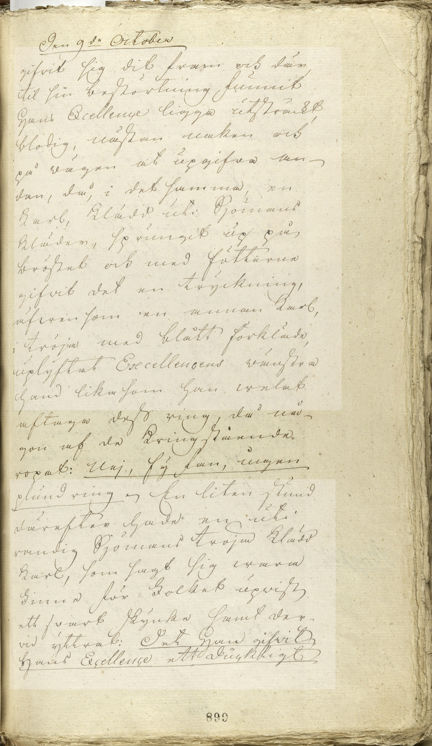 Den 9de October
gifvit sig dit fram och där
til sin bestörtning funnit
Hans Excellence ligga utsträckt,
blodig, nästan naken och
på vägen at upgifva an-
dan, då, i det samma, en
Karl, klädd uti Sjömans
kläder, sprungit up på
bröstet och med fötterne
gifvit det en tryckning,
äfvensom en annan Karl,
i tröja med blått förkläde,
uplyftat Excellencens vänstra
hand likasom han velat
aftaga dess ring, då nå-
gon af de kringstående
ropat: Nej, fy fan, ingen
plundring. En liten stund
därefter hade en uti
randig Sjömans tröja klädd
Karl, som sagt sig vara
sinne för Folket upvist
ett svart skynke samt der-
vid yttrat: Det han gifvit
Hans Excellence ett dugtigt
899